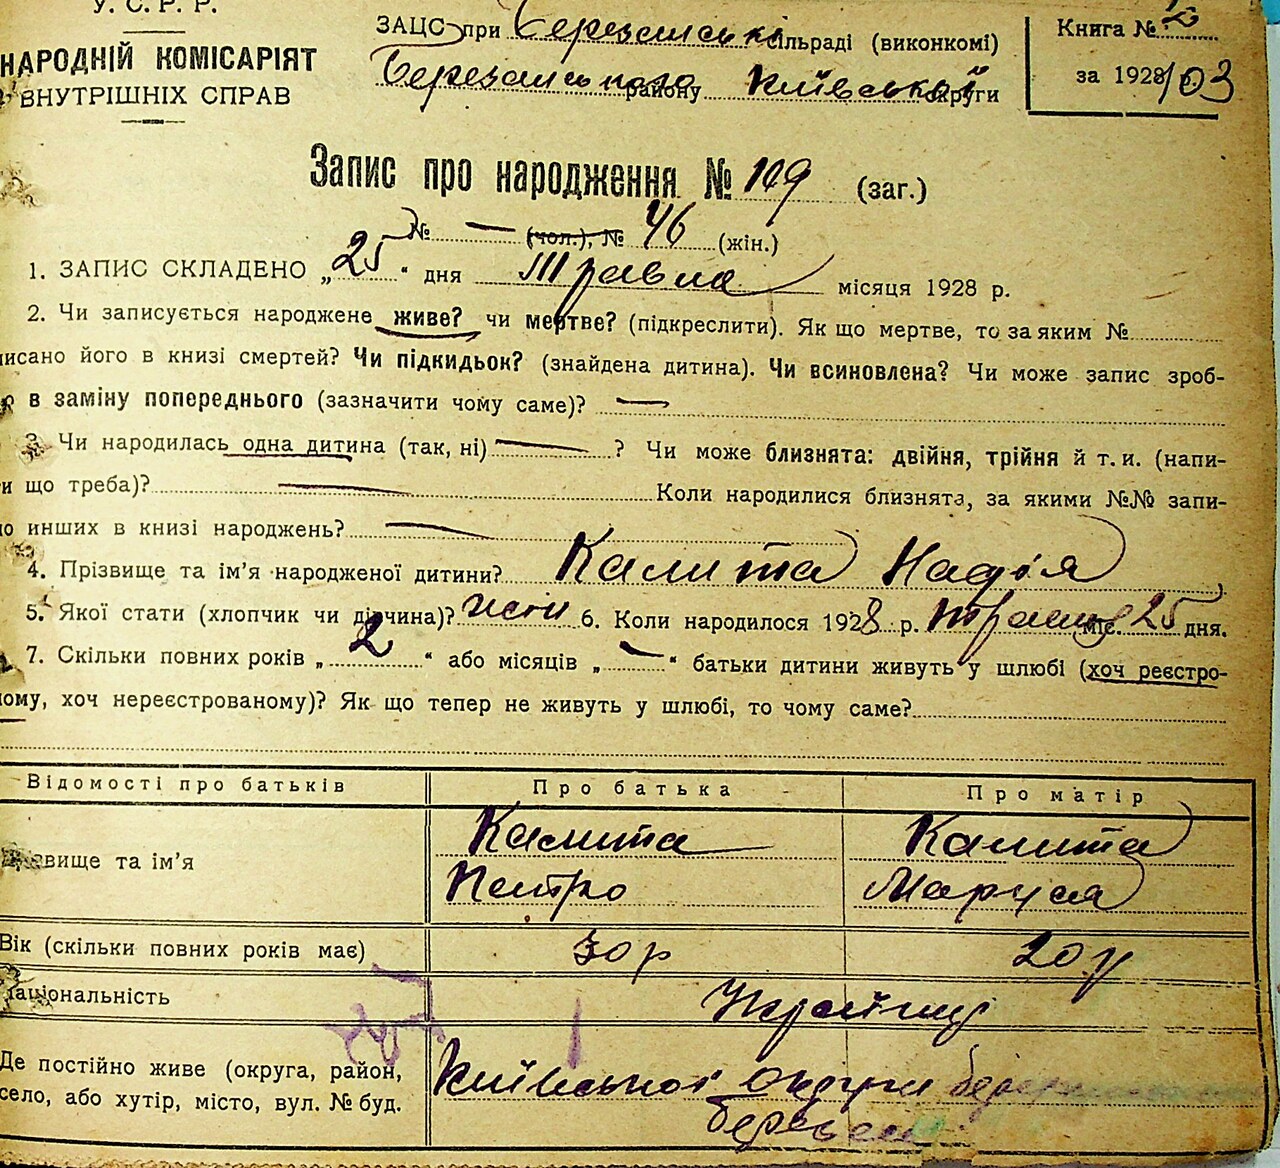 У.С.Р.Р.
НАРОДНІЙ КОМІСАРІЯТ
ВНУТРІШНІХ СПРАВ
ЗАЦС при Березанські сільраді (виконкомі)
Березанського району Київської округи
Книга № 2
за 1928/103
Запис про народження № 109 (заг.)
№ — (чол.), № 46 (жін.)
1. ЗАПИС СКЛАДЕНО „25“ дня Травня місяця 1928 р.
2. Чи записується народжене живе? чи мертве? (підкреслити). Як що мертве, то за яким №
писано його в книзі смертей? Чи підкидьок? (знайдена дитина). Чи всиновлена? Чи може запис зроб-
в заміну попереднього (зазначити чому саме)? —
3. Чи народилась одна дитина (так, ні) — ? Чи може близнята: двійня, трійня й т. и. (напи-
и що треба)? — Коли народилися близнята, за якими №№ запи-
но инших в книзі народжень? —
4. Прізвище та ім’я народженої дитини? Калита Надія
5. Якої стати (хлопчик чи дівчина)? жен 6. Коли народилося 1928 р. травня міс. 25 дня.
7. Скільки повних років „2“ або місяців „—“ батьки дитини живуть у шлюбі (хоч реєстро-
ному, хоч нереєстрованому)? Як що тепер не живуть у шлюбі, то чому саме?
Відомості про батьків Про батька Про матір
Прізвище та ім’я Калита Петро Калита Маруся
Вік (скільки повних років має) 30 р 20 р
Національність Українці
Де постійно живе (округа, район,
село, або хутір, місто, вул. № буд.
Київської округи